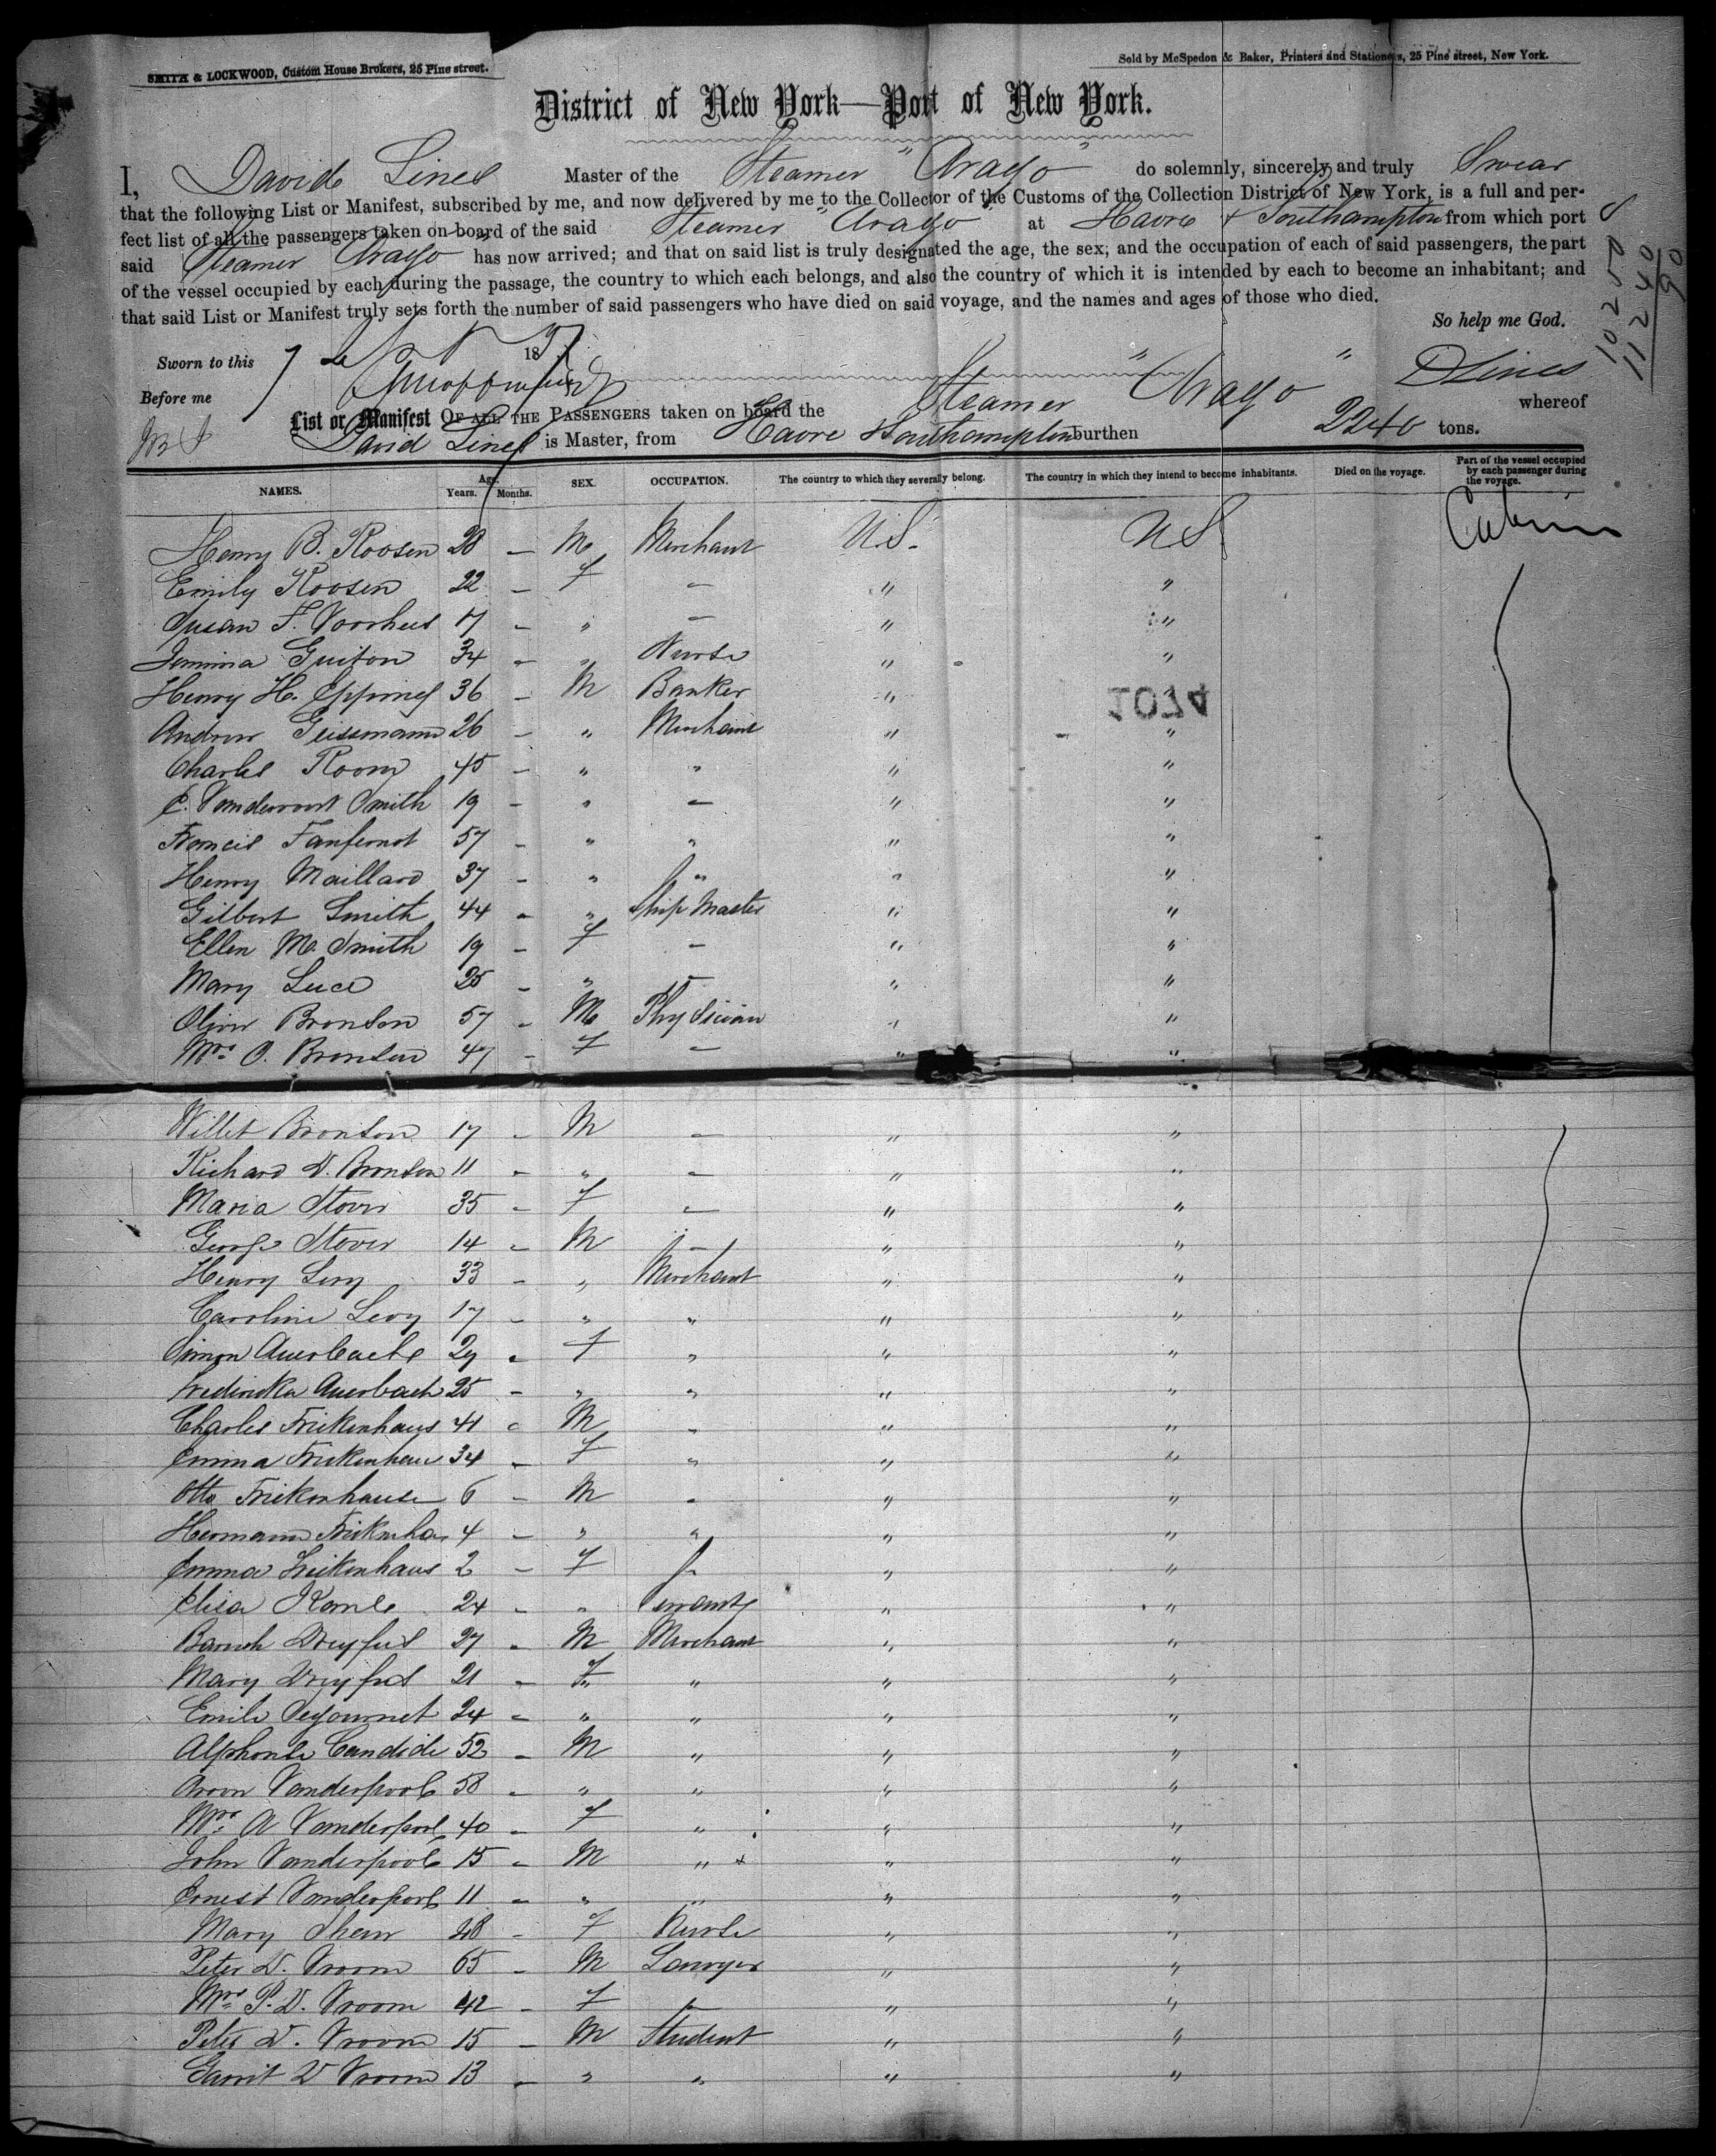 SMITH & LOCKWOOD, Custom House Brokers, 25 Pine street.
Sold by McSpedon & Baker, Printers and Stationers, 25 Pine street, New York.
District of New York—Port of New York.
I, David Lines Master of the Steamer "Arago" do solemnly, sincerely and truly Swear
that the following List or Manifest, subscribed by me, and now delivered by me to the Collector of the Customs of the Collection District of New York, is a full and per-
fect list of all the passengers taken on board of the said Steamer "Arago" at Havre & Southampton from which port
said Steamer Arago has now arrived; and that on said list is truly designated the age, the sex, and the occupation of each of said passengers, the part
of the vessel occupied by each during the passage, the country to which each belongs, and also the country of which it is intended by each to become an inhabitant; and
that said List or Manifest truly sets forth the number of said passengers who have died on said voyage, and the names and ages of those who died.
So help me God.
Sworn to this 7 185
Before me
D Lines
List or Manifest OF ALL THE PASSENGERS taken on board the Steamer "Arago" whereof
David Lines is Master, from Havre & Southampton burthen 2240 tons.
NAMES. Age. Years. Months. SEX. OCCUPATION. The country to which they severally belong. The country in which they intend to become inhabitants. Died on the voyage. Part of the vessel occupied by each passenger during the voyage.
Henry B. Roosen 28 — M Merchant U.S. U S. Cabin
Emily Roosen 22 — F — " "
Susan F. Voorhees 17 — " — " "
Jemima Guiton 34 — " Nurse " "
Henry H. Epping 36 — M Banker " "
1074
Andrew Geissmann 26 — " Merchant " "
Charles Room 45 — " " " "
C. Vandervoort Smith 19 — " — " "
Francis Fanfernot 57 — " " " "
Henry Maillard 37 — " " " "
Gilbert Smith 44 — " Ship Master " "
Ellen M. Smith 19 — F — " "
Mary Luce 25 — " — " "
Oliver Bronson 57 — M Physician " "
Mrs O. Bronson 47 — F — " "
Willet Bronson 17 — M — " "
Richard D. Bronson 11 — " — " "
Maria Stover 35 — F — " "
George Stover 14 — M — " "
Henry Levy 33 — " Merchant " "
Caroline Levy 17 — " " " "
Simon Auerbach 29 — F " " "
Fredericka Auerbach 25 — " " " "
Charles Frickenhaus 41 — M " " "
Emma Frickenhaus 34 — F " " "
Otto Frickenhause 6 — M " " "
Hermann Frickenhas 4 — " " " "
Emma Frickenhaus 2 — F " "
Elisa 24 — " Servant " "
Baruch Dreyfus 27 — M Merchant " "
Mary Dreyfus 21 — F " " "
Emile Sejournet 24 — " " " "
Alphonse Candide 52 — M " " "
Aron Vanderpool 58 — " " " "
Mrs A Vanderpool 40 — F " " "
John Vanderpool 15 — M " " "
Ernest Vanderpool 11 — " " " "
Mary Shaw 28 — F Nurse " "
Peter D. Vroom 65 — M Lawyer " "
Mrs P. D. Vroom 42 — F — " "
Peter D. Vroom 15 — M Student " "
Garrit D Vroom 13 — " " " "